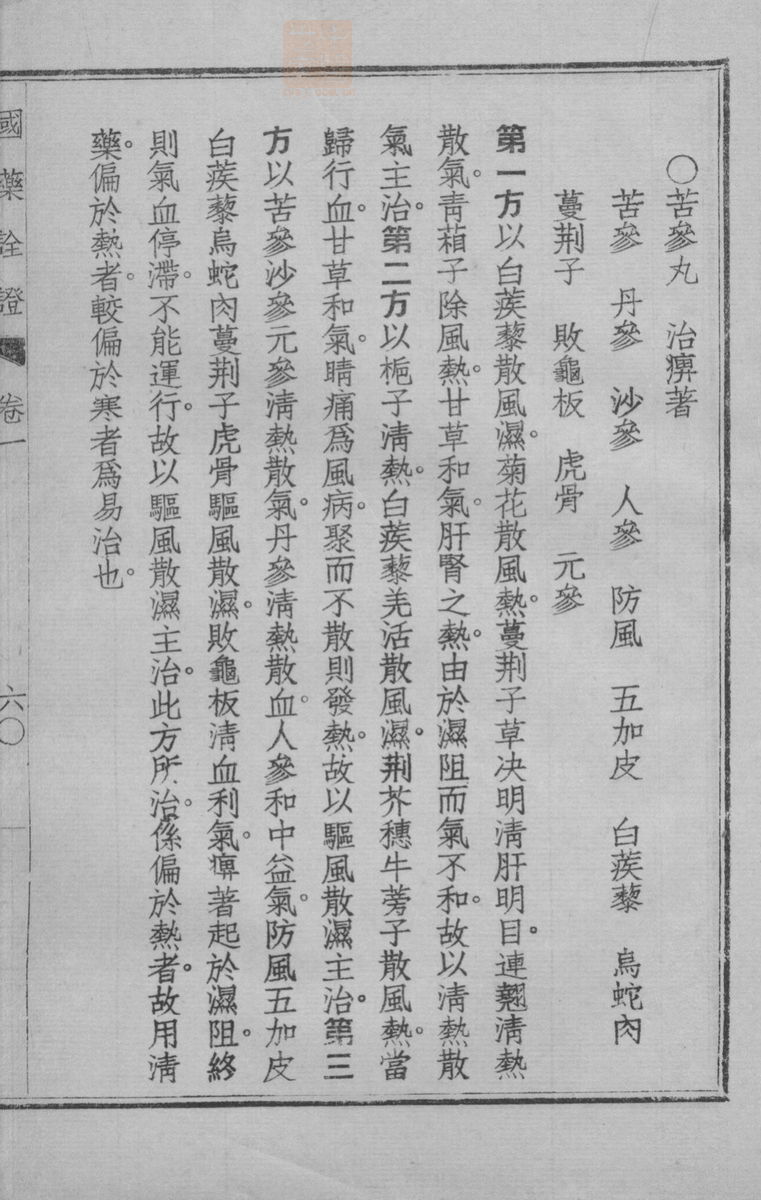 〇苦參丸　治痹著
苦參　丹參　沙參　人參　防風　五加皮　白蒺藜　烏蛇肉
蔓荆子　敗龜板　虎骨　元參
第一方以白蒺藜散風濕。菊花散風熱。蔓荆子草决明淸肝明目。連翹淸熱
散氣。靑葙子除風熱。甘草和氣。肝腎之熱。由於濕阻而氣不和。故以淸熱散
氣主治。第二方以梔子淸熱。白蒺藜羌活散風濕。荆芥穗牛蒡子散風熱。當
歸行血。甘草和氣。睛痛爲風病。聚而不散則發熱。故以驅風散濕主治。第三
方以苦參沙參元參淸熱散氣。丹參淸熱散血。人參和中益氣。防風五加皮
白蒺藜烏蛇肉蔓荆子虎骨驅風散濕。敗龜板淸血利氣。痹著起於濕阻。終
則氣血停滯。不能運行。故以驅風散濕主治。此方所治。係偏於熱者。故用淸
藥。偏於熱者。較偏於寒者爲易治也。
國藥詮證　卷一　六〇